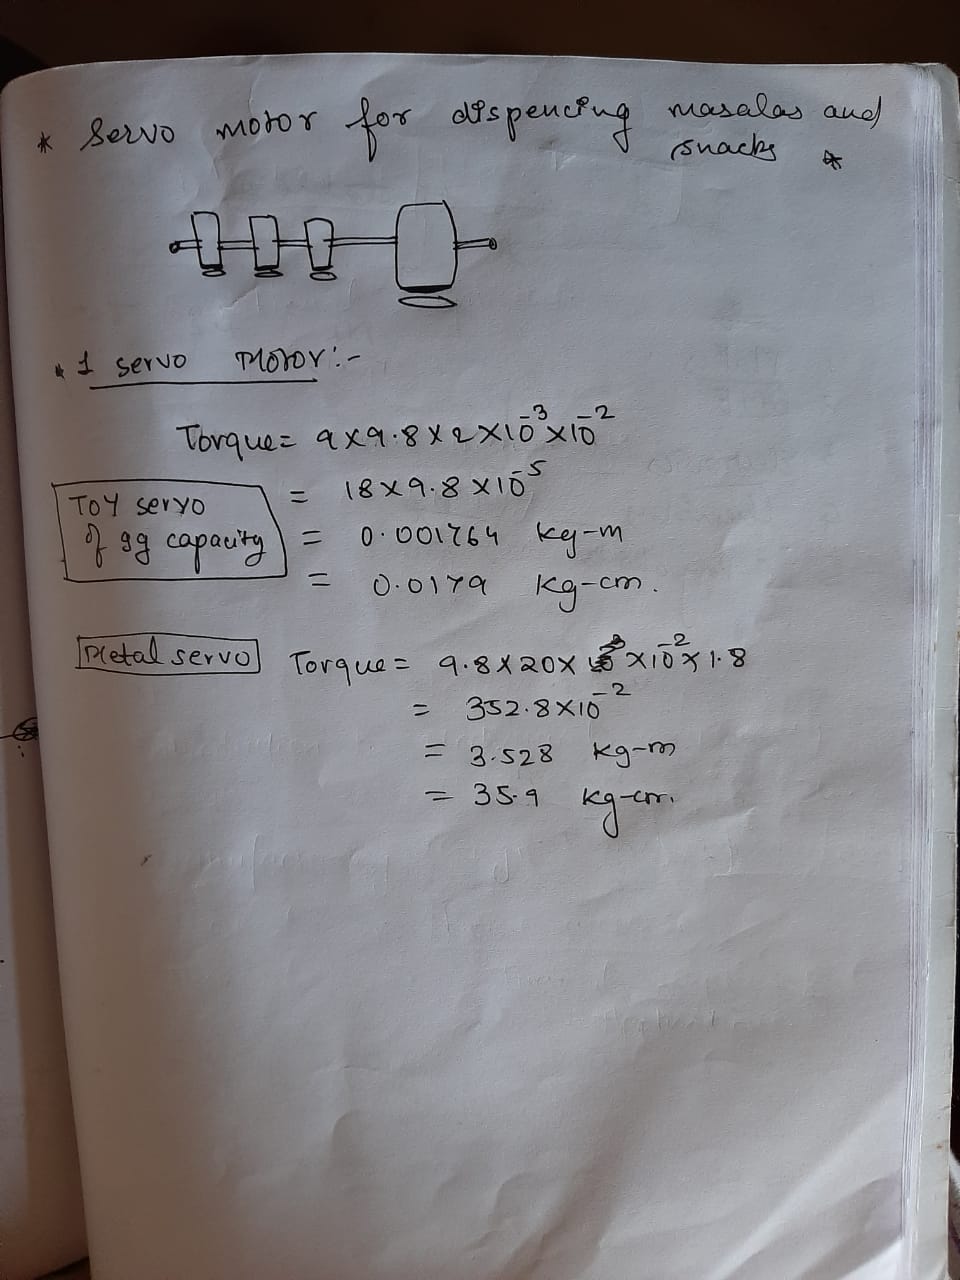 * Servo motor for dispencing masalas and
snacks *
* 1 servo Motor:-
Torque = 9x9.8x2x10^-3x10^-2
= 18x9.8x10^-5
TOY servo
of 9g capacity
= 0.001764 kg-m
= 0.0179 kg-cm.
Metal servo Torque = 9.8x20x x10^-2x1.8
= 352.8x10^-2
= 3.528 kg-m
= 35.9 kg-cm.